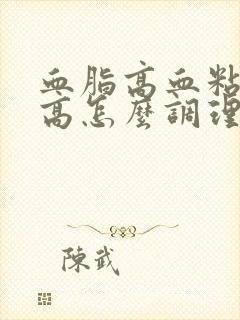 血脂高血粘
高怎麼調理
陳武